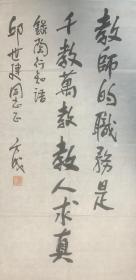 教師的職務是
千教萬教教人求真
錄陶行知語
邱世建同志正
方成